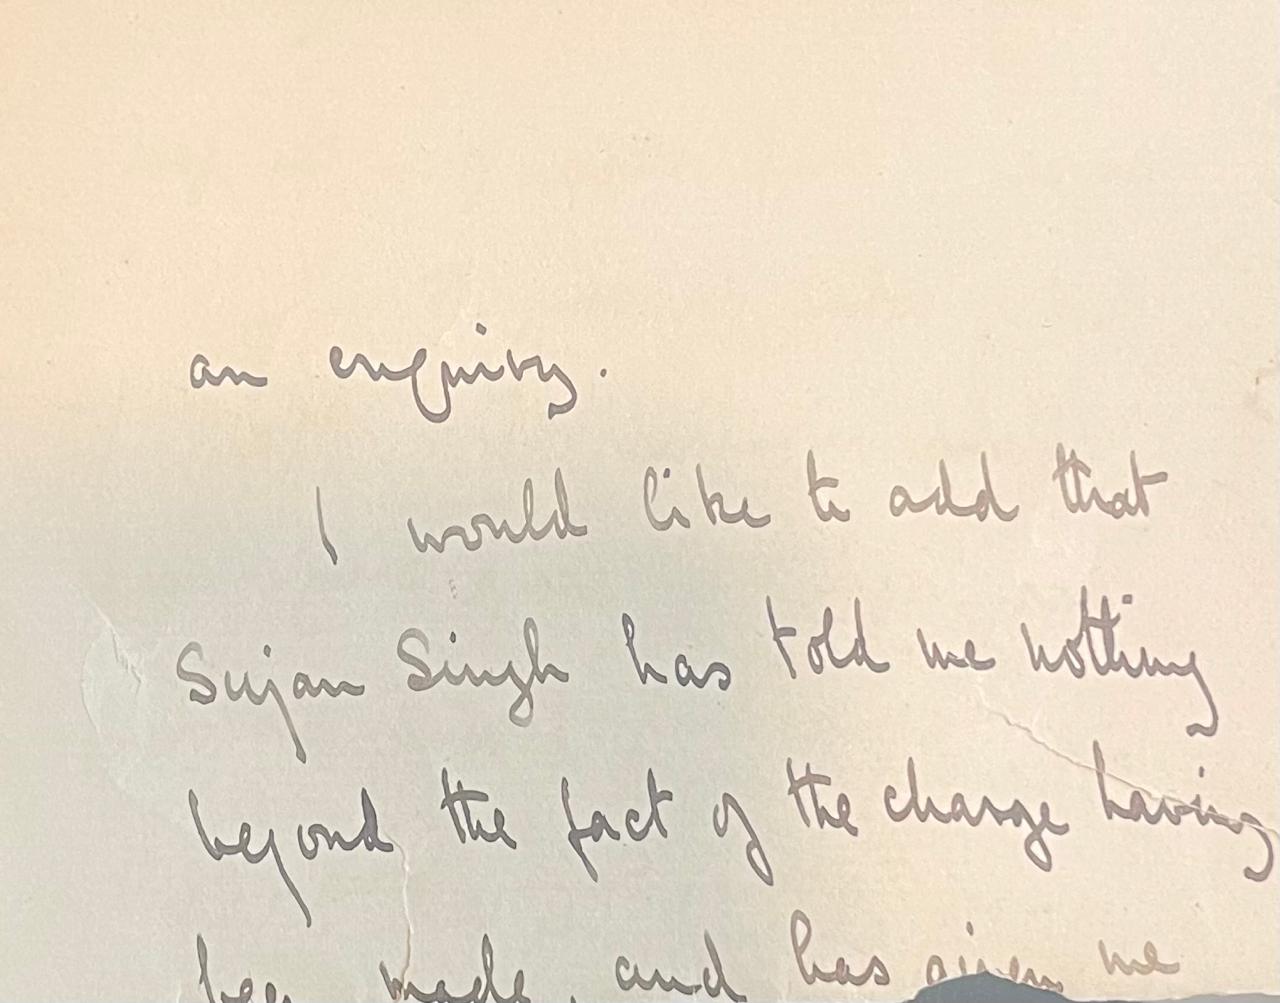 an enquiry.
I would like to add that
Sujan Singh has told me nothing
beyond the fact of the charge having
been made, and has given me